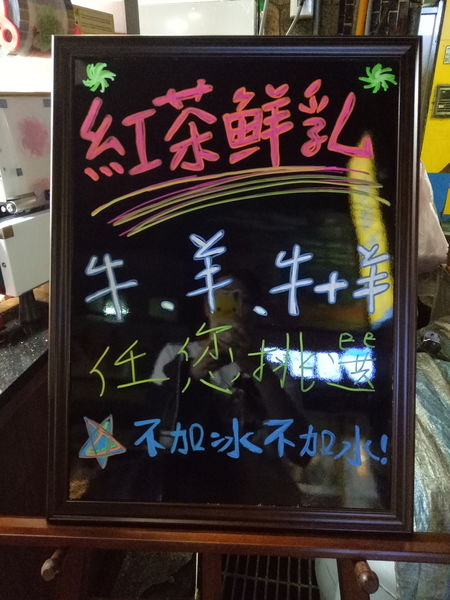 紅茶鮮乳
牛、羊、牛+羊
任您挑選
不加冰不加水!